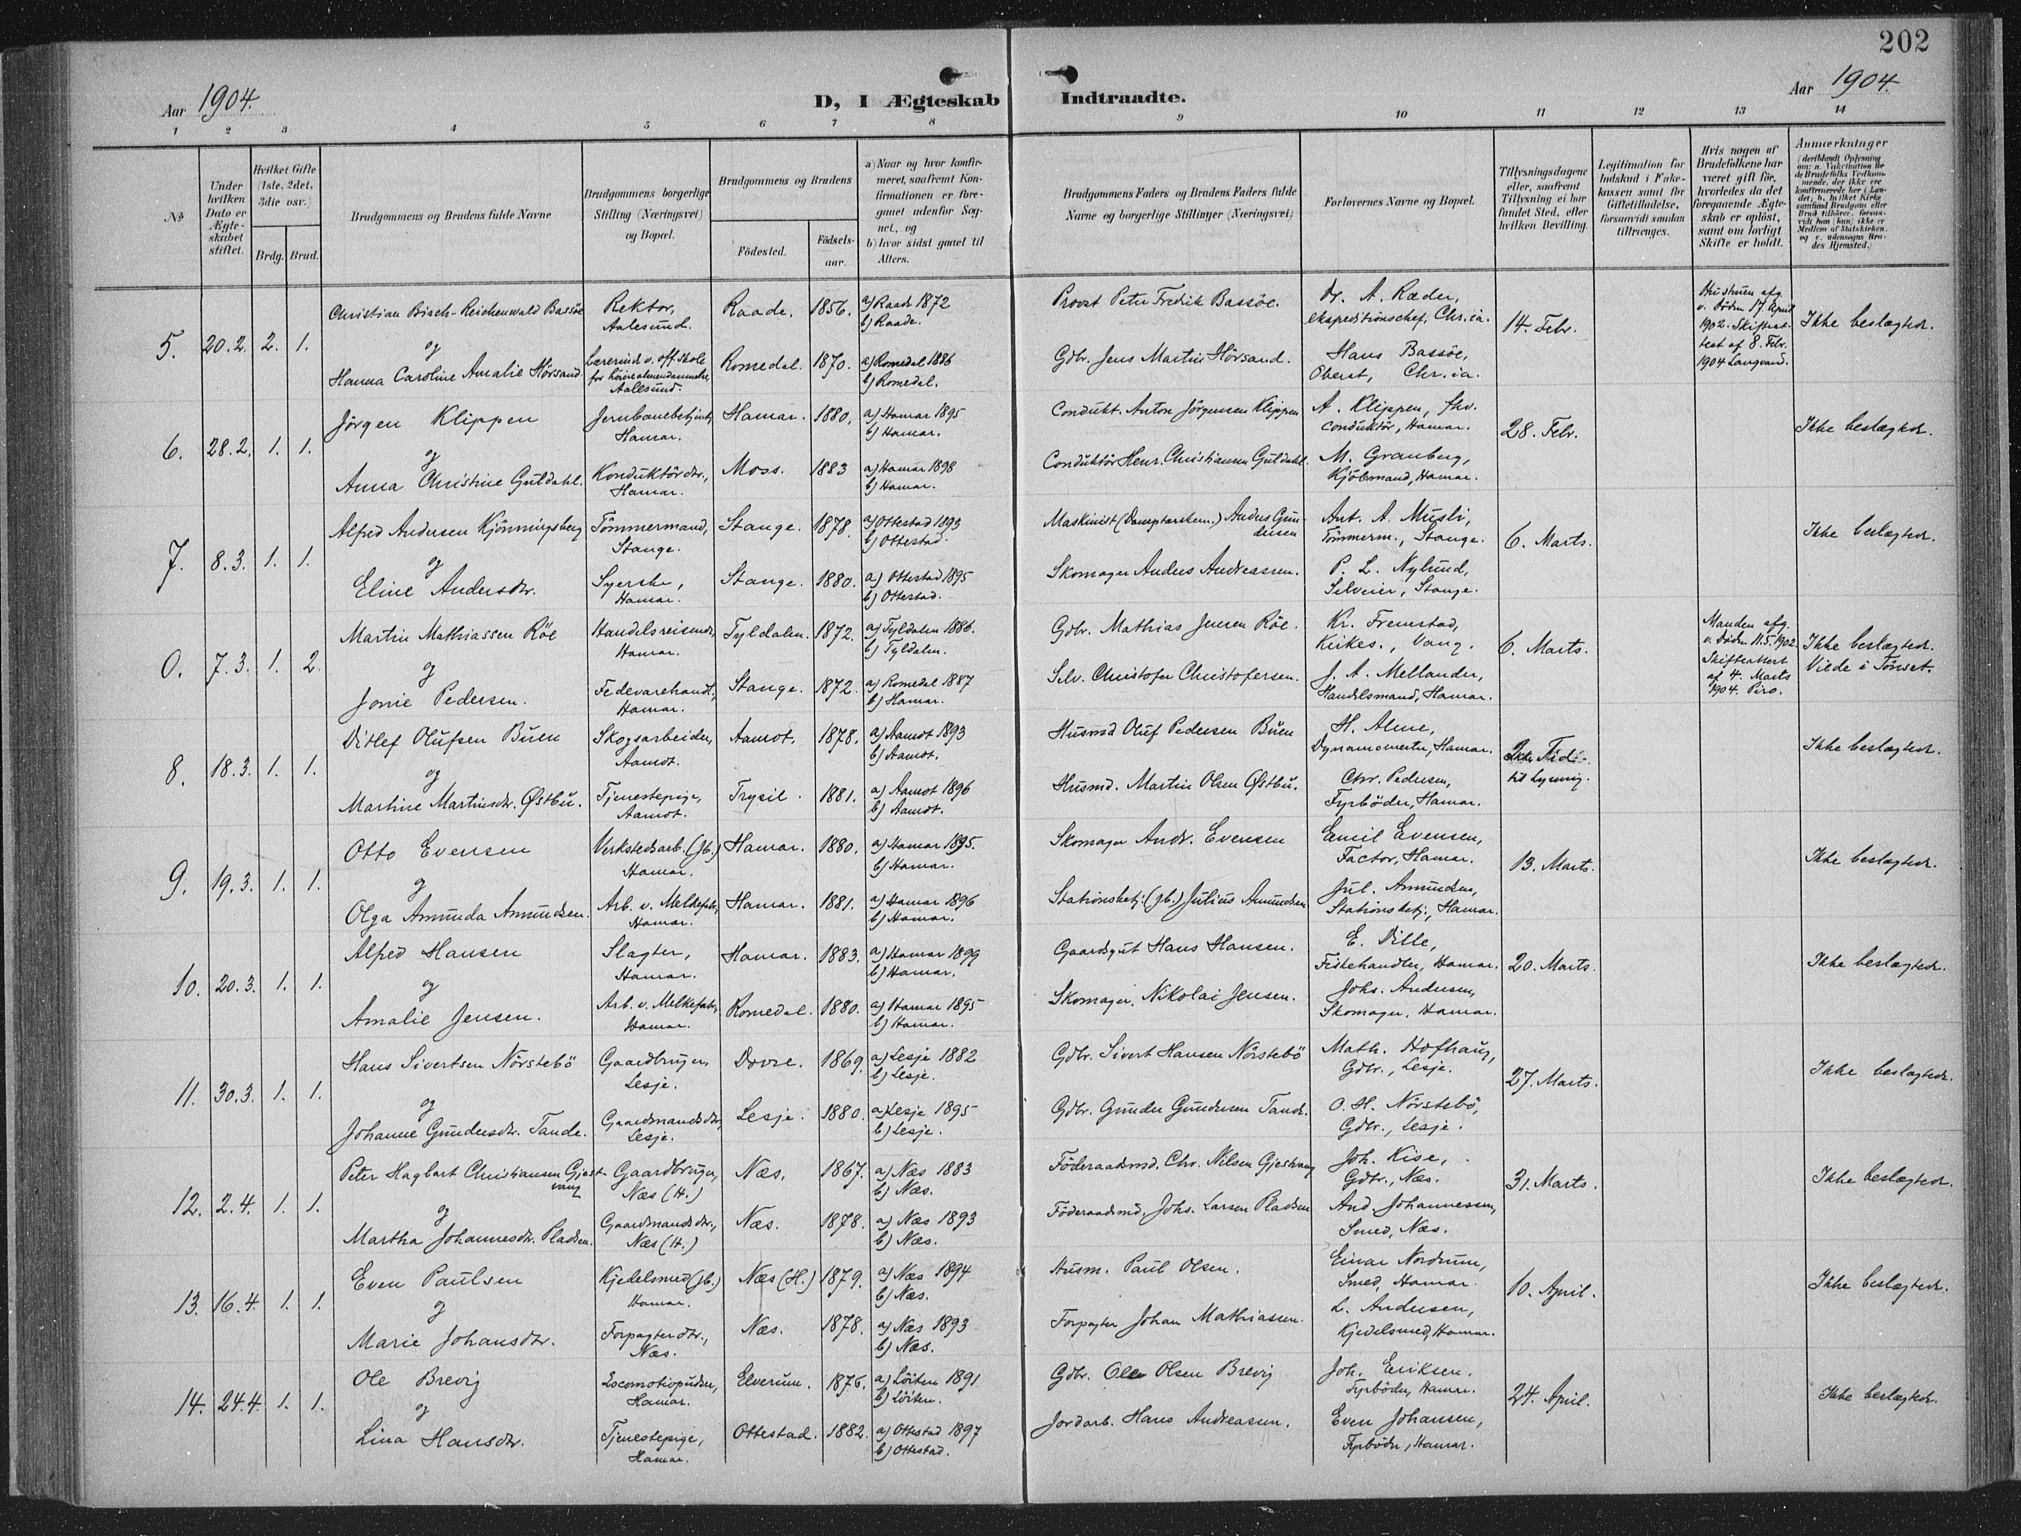 202
Aar 1904.
D, I Ægteskab Indtraadte.
Aar 1904.
1 2 3 4 5 6 7 8 9 10 11 12 13 14
No
Under hvilken Dato er Ægteskabet stiftet.
Hvilket Gifte (1ste, 2det, 3die osv.)
Brdg. Brud.
Brudgommens og Brudens fulde Navne
Brudgommens borgerlige Stilling (Næringsvei) og Bopæl.
Brudgommens og Brudens
Födested.
Födselsaar.
a) Naar og hvor konfirmeret, saafremt Konfirmationen er foregaaet udenfor Sognet, og
b) hvor sidst gaaet til Alters.
Brudgommens Faders og Brudens Faders fulde Navne og borgerlige Stillinger (Næringsvei)
Forlovernes Navne og Bopæl.
Tillysningsdagene eller, saafremt Tillysning ei har fundet Sted, efter hvilken Bevilling.
Legitimation for Indskud i Enkekassen samt for Giftetilladelse, forsaavidt saadan tiltrænges.
Hvis nogen af Brudefolkene har været gift för, hvorledes da det foregaaende Ægteskab er oplöst, samt om lovligt Skifte er holdt.
Anmerkninger
5. 20.2. 2. 1.
Christian Bisch-Reichenwald Bassöe Rektor, Aalesund. Raade. 1856. a) Raade 1872 b) Raade. Provst Peter Fredik Bassöe. Dr. A. Ræder, ekspeditionschef, Chr.ia.
14. Febr. Hustruen afg. v. Döden 17. April 1902. Skifteattest af 8. Febr. 1904 Langvand. Ikke beslægtede.
og
Hanna Caroline Amalie Hörsand Lærerinde v. off. skole for höiere almendannelse, Aalesund. Romedal. 1870. a) Romedal 1886 b) Romedal. Gdbr. Jens Martin Hörsand. Hans Bassöe, Oberst, Chr.ia.
6. 28.2. 1. 1.
Jörgen Klippen Jernbanebetjent, Hamar. Hamar. 1880. a) Hamar 1895 b) Hamar. Condukt. Anton Jörgensen Klippen A. Klippen, fhv. conduktör, Hamar.
28. Febr. Ikke beslægtede.
og
Anna Christine Guldahl. Konduktördtr., Hamar. Moss. 1883 a) Hamar 1898 b) Hamar. Conduktör Henr. Christiansen Guldahl. M. Granberg, Kjöbmand, Hamar.
7. 8.3. 1. 1.
Alfred Andersen Kjönningsberg Tömmermand, Stange. Stange. 1878. a) Ottestad 1893 b) Ottestad. Maskinist (Damptærskem.) Anders Gundersen Ant. A. Musli, Tömmerm., Stange.
6. Marts. Ikke beslægtede.
og
Eline Andersdtr. Syerske, Hamar. Stange. 1880. a) Ottestad 1895 b) Ottestad. Skomager Anders Andreassen. P. L. Nylund, Selveier, Stange.
0. 7.3. 1. 2.
Martin Mathiassen Röe Handelsreisende, Hamar. Tyldalen. 1872. a) Tyldalen 1886. b) Tyldalen. Gdbr. Mathias Jensen Röe. Kr. Fremstad, Kirkes., Vang.
6. Marts. Manden afg. v. Döden 11.5.1902. Skifteattest af 4. Marts 1904. Piro. Ikke beslægtede. Viede i Tönset.
og
Jonie Pedersen. Fedevarehandl., Hamar. Stange. 1872. a) Romedal 1887 b) Hamar. Selv. Christofer Christofersen. J. A. Mellander, Handelsmand, Hamar.
8. 18.3. 1. 1.
Ditlef Olufsen Buen Skogsarbeider, Aamot. Aamot. 1878. a) Aamot 1893 b) Aamot. Husmd Oluf Pedersen Buen H. Alme, Dynamomester, Hamar.
Ikke Tid til Lysning. Ikke beslægtede.
og
Martine Martinsdtr. Østbu. Tjenestepige, Aamot. Trysil. 1881. a) Aamot 1896 b) Aamot. Husmd. Martin Olsen Østbu. Chr. Pedersen, Fyrböder, Hamar.
9. 19.3. 1. 1.
Otto Evensen Verkstedsarb. (Jb.) Hamar. Hamar. 1880. a) Hamar 1895. b) Hamar. Skomager Andr. Evensen Emil Evensen, Factor, Hamar.
13. Marts. Ikke beslægtede.
og
Olga Amunda Amundsen. Arb. v. Melkefabr., Hamar. Hamar. 1881. a) Hamar 1896 b) Hamar. Stationsbetj. (Jb.) Julius Amundsen Jul. Amundsen, Stationsbetj., Hamar.
10. 20.3. 1. 1.
Alfred Hansen Slagter, Hamar. Hamar. 1883. a) Hamar 1899 b) Hamar. Gaardsgut Hans Hansen. E. Dille, Fiskehandler, Hamar.
20. Marts. Ikke beslægtede.
og
Amalie Jensen. Arb. v. Melkefabr., Hamar. Romedal. 1880. a) Hamar 1895 b) Hamar. Skomager Nikolai Jensen. Johs. Andersen, Skomager, Hamar.
11. 30.3. 1. 1.
Hans Sivertsen Nörstebö Gaardbruger, Lesje. Dovre. 1869. a) Lesje 1882 b) Lesje. Gdbr. Sivert Hansen Nörstebö Math. Hofhaug, Gdbr., Lesje.
27. Marts. Ikke beslægtede.
og
Johanne Gundersdtr. Tande. Gaardmandsdtr., Lesje. Lesje. 1880. a) Lesje 1895 b) Lesje. Gdbr. Gunder Gundersen Tande. O. H. Nörstebö, Gdbr., Lesje.
12. 2.4. 1. 1.
Peter Hagbart Christiansen Gjestvang Gaardbruger, Næs (H.) Næs. 1867. a) Næs 1883 b) Næs. Föderaadsmd. Chr. Nilsen Gjestvang Joh. Kise, Gdbr., Næs.
31. Marts. Ikke beslægtede.
og
Martha Johannesdtr. Pladsen. Gaardmandsdtr., Næs (H.) Næs. 1878. a) Næs 1893 b) Næs. Föderaadsmd. Johs. Larsen Pladsen And. Johannessen, Smed, Næs.
13. 16.4. 1. 1.
Even Paulsen Kjedelsmed (Jb.) Hamar. Næs (H.) 1879. a) Næs 1894 b) Næs. Husm. Paul Olsen. Einar Nordrum, Smed, Hamar.
10. April. Ikke beslægtede.
og
Marie Johansdtr. Forpagterdtr., Næs. Næs. 1878. a) Næs 1893 b) Næs. Forpagter Johan Mathiassen. L. Andersen, Kjedelsmed, Hamar.
14. 24.4. 1. 1.
Ole Brevig Locomotivpudser, Hamar. Elverum. 1876. a) Löiten 1891 b) Löiten. Gdbr. Ole Olsen Brevig Joh. Eriksen. Fyrböder, Hamar.
24. April. Ikke beslægtede.
og
Lina Hansdtr. Tjenestepige, Hamar. Ottestad. 1882. a) Ottestad 1897 b) Ottestad. Jordarb. Hans Andreassen. Even Johansen, Fyrböder, Hamar.